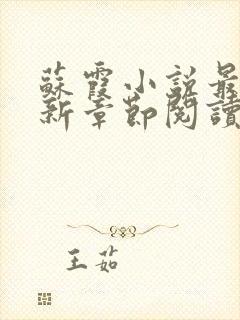 蘇霞小說最
新章節閱讀
王茹